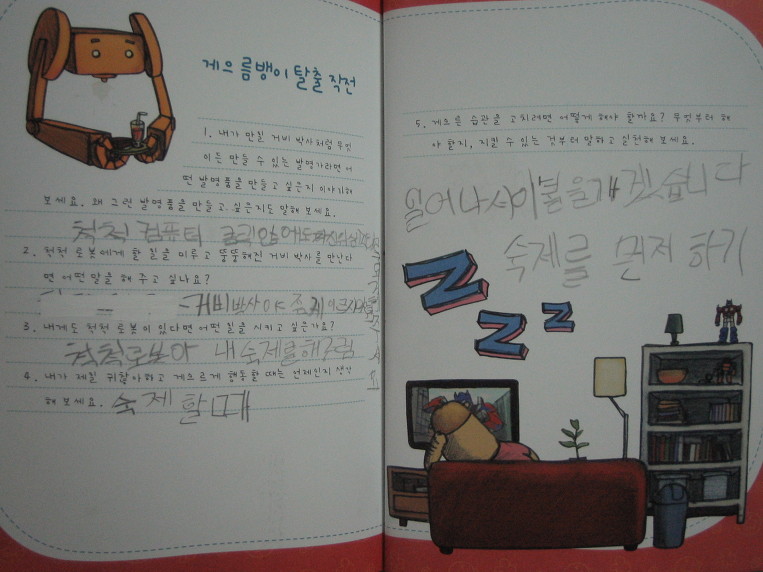 게으름뱅이 탈출 작전
1. 내가 만일 거비 박사처럼 무엇
이든 만들 수 있는 발명가라면 어
떤 발명품을 만들고 싶은지 이야기해
보세요. 왜 그런 발명품을 만들고 싶은지도 말해 보세요.
척척 컴퓨터 클릭
2. 척척 로봇에게 할 일을 미루고 뚱뚱해진 거비 박사를 만난다
면 어떤 말을 해 주고 싶나요?
거비박사야
3. 내게도 척척 로봇이 있다면 어떤 일을 시키고 싶은가요?
척척로보야 내 숙제를해
4. 내가 제일 귀찮아하고 게으르게 행동할 때는 언제인지 생각
해 보세요. 숙제 할 때
5. 게으른 습관을 고치려면 어떻게 해야 할까요? 무엇부터 해
야 할지, 지킬 수 있는 것부터 말하고 실천해 보세요.
일어나서이불을개겠습니다
숙제를 먼저 하기
Z
Z
Z